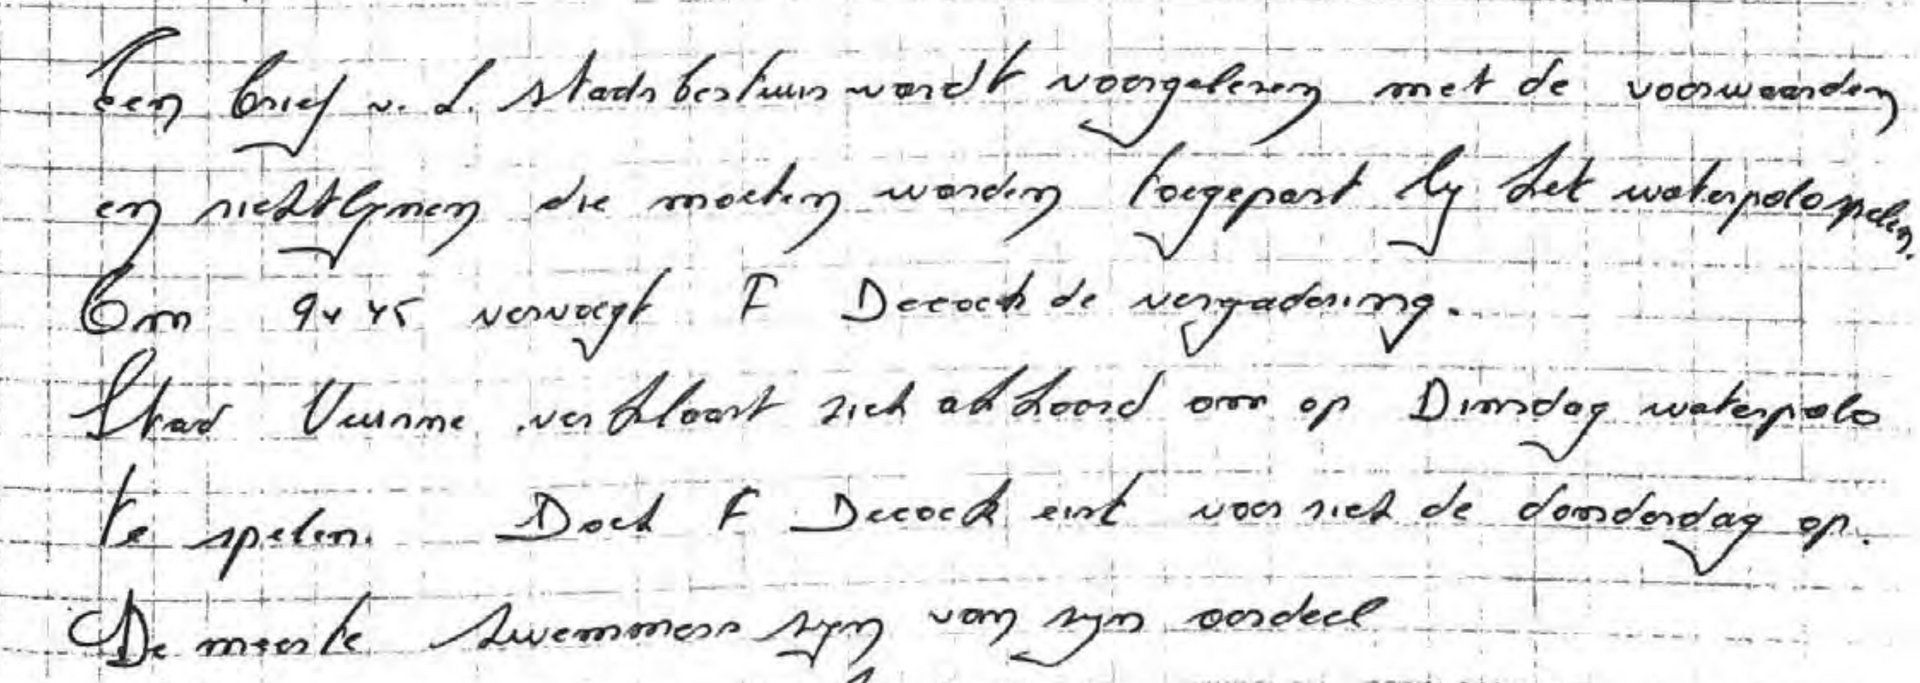 Een brief v. d. stadsbestuur wordt voorgelezen met de voorwaarden
en richtlijnen die moeten worden toegepast bij het waterpolospelen.
Om 9u45 vervoegt F Decock de vergadering.
Stad Veurne verklaart zich akkoord om op Dinsdag waterpolo
te spelen. Doch F Decock eist voor zich de donderdag op.
De meeste zwemmers zijn van zijn oordeel